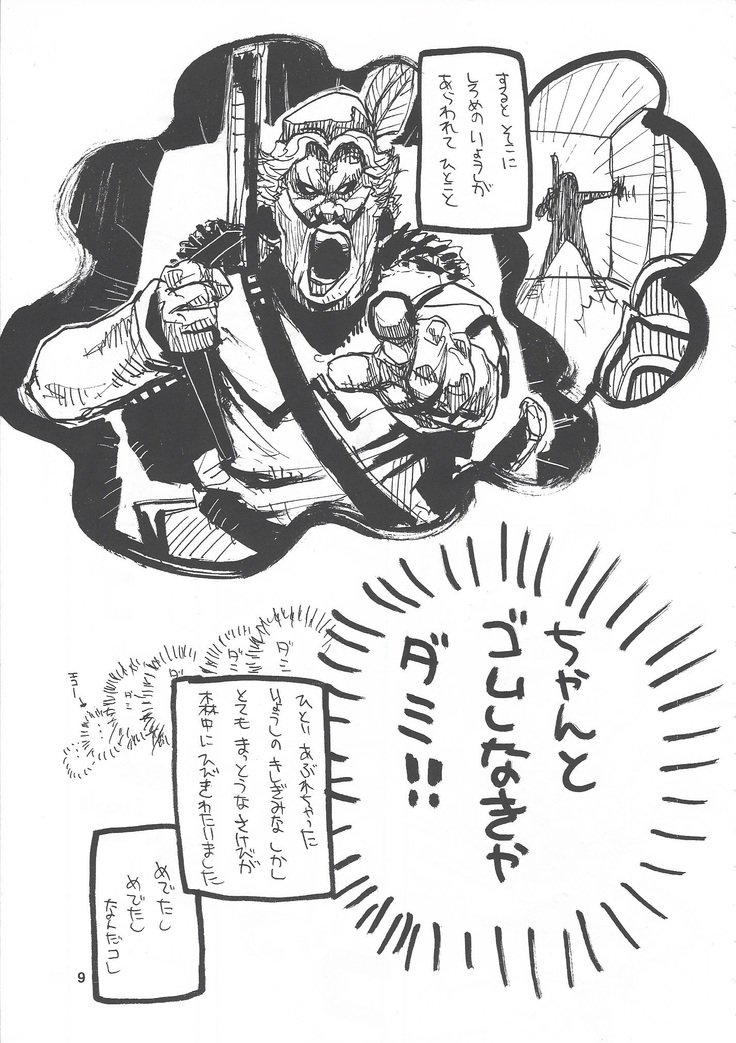 するとそこに
しろめのりょうしが
あらわれてひとこと
ちゃんと
ゴムしなきゃ
ダミ!!
ダミ
ダミ
ダ
ダミ
ミョー
ひとりあぶれちゃった
りょうしのきしぎみな しかし
とてもまっとうなさけびが
森中にひびきわたりました
めでたし
めでたし
なんだコレ
9